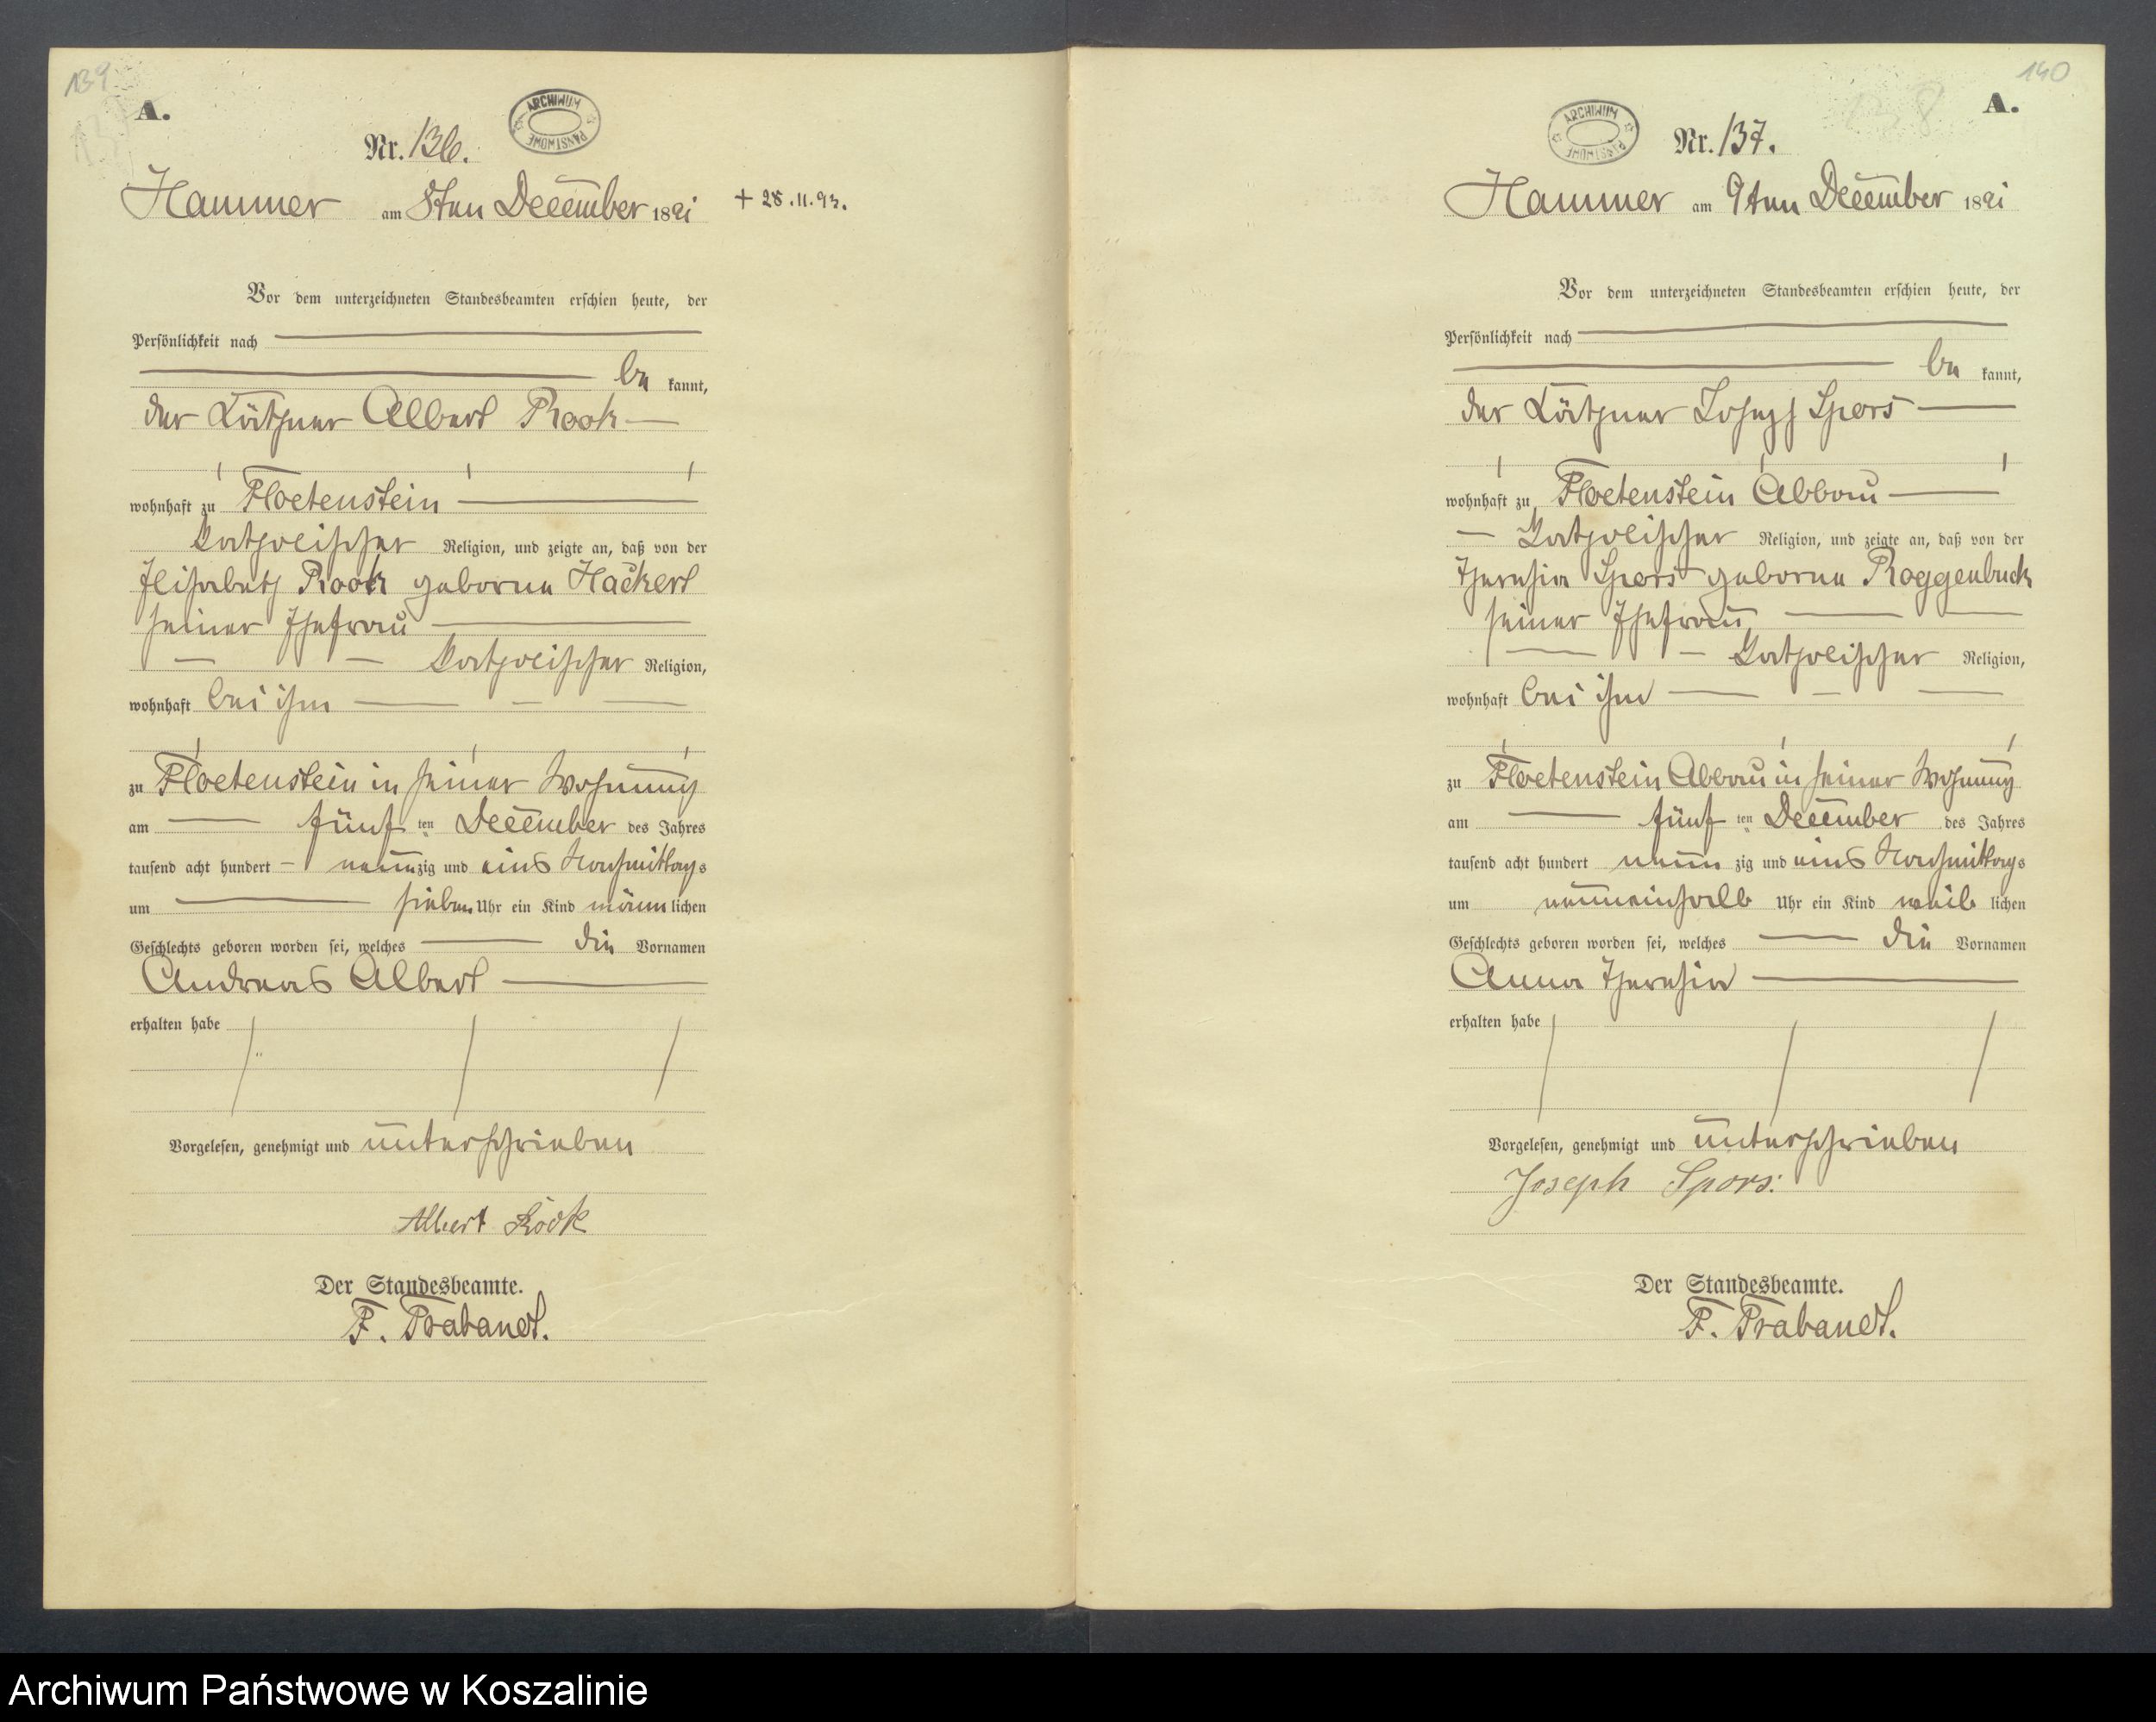 139
A.
ARCHIWUM PAŃSTWOWE
Nr. 136.
Hammer am 8ten December 1891
+ 28.11.93.
Vor dem unterzeichneten Standesbeamten erschien heute, der
Persönlichkeit nach
be kannt,
der Käthner Albert Rook
wohnhaft zu Floetenstein
katholischer Religion, und zeigte an, daß von der
Elisabeth Rook geborne Hackert
seiner Ehefrau
katholischer Religion,
wohnhaft bei ihm
zu Floetenstein in seiner Wohnung
am fünf ten December des Jahres
tausend acht hundert neunzig und eins Nachmittags
um sieben Uhr ein Kind männlichen
Geschlechts geboren worden sei, welches die Vornamen
Andreas Albert
erhalten habe
Vorgelesen, genehmigt und unterschrieben
Albert Rook
Der Standesbeamte.
F. Prabandt.
140
A.
138
ARCHIWUM PAŃSTWOWE
Nr. 137.
Hammer am 9ten December 1891
Vor dem unterzeichneten Standesbeamten erschien heute, der
Persönlichkeit nach
be kannt,
der Käthner Joseph Spors
wohnhaft zu Floetenstein Abbau
katholischer Religion, und zeigte an, daß von der
Theresia Spors geborne Roggenbuck
seiner Ehefrau
katholischer Religion,
wohnhaft bei ihm
zu Floetenstein Abbau in seiner Wohnung
am fünf ten December des Jahres
tausend acht hundert neun zig und eins Nachmittags
um neuneinhalb Uhr ein Kind weib lichen
Geschlechts geboren worden sei, welches die Vornamen
Anna Theresia
erhalten habe
Vorgelesen, genehmigt und unterschrieben
Joseph Spors.
Der Standesbeamte.
F. Prabandt.
Archiwum Państwowe w Koszalinie